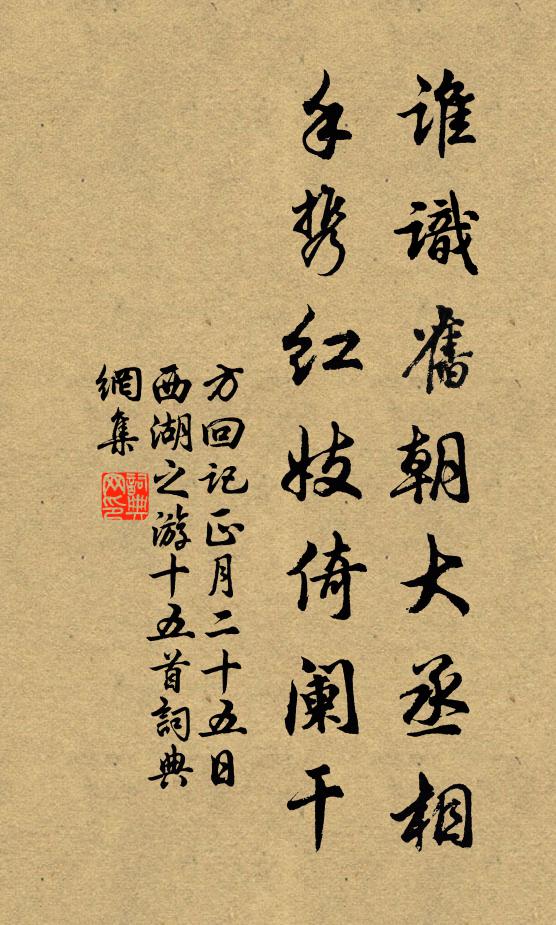 誰識舊朝大丞相
手携红妓倚阑干
方回记正月二十五日
西湖之游十五首詞典
網集
詞典
网印